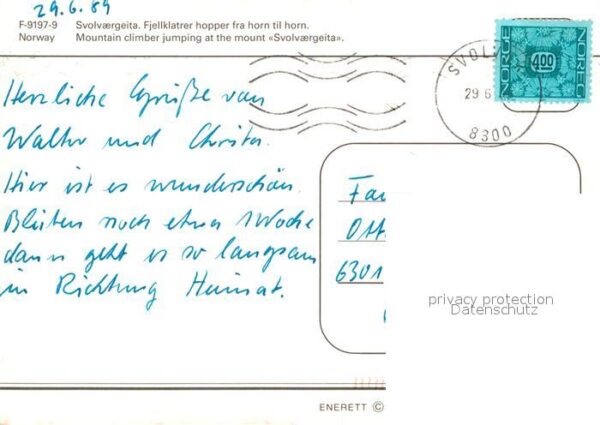 29.6.89
F-9197-9 Svolværgeita. Fjellklatrer hopper fra horn til horn.
Norway Mountain climber jumping at the mount «Svolværgeita».
NORGE
NOREG
4.00
SVOL
29 6
8300
Herzliche Grüße von
Walter und Christa.
Hier ist es wunderschön.
Bleiben noch etwa 1 Woche
dann geht es so langsam
in Richtung Heimat.
Fa
Ott
6301
privacy protection
Datenschutz
ENERETT ©